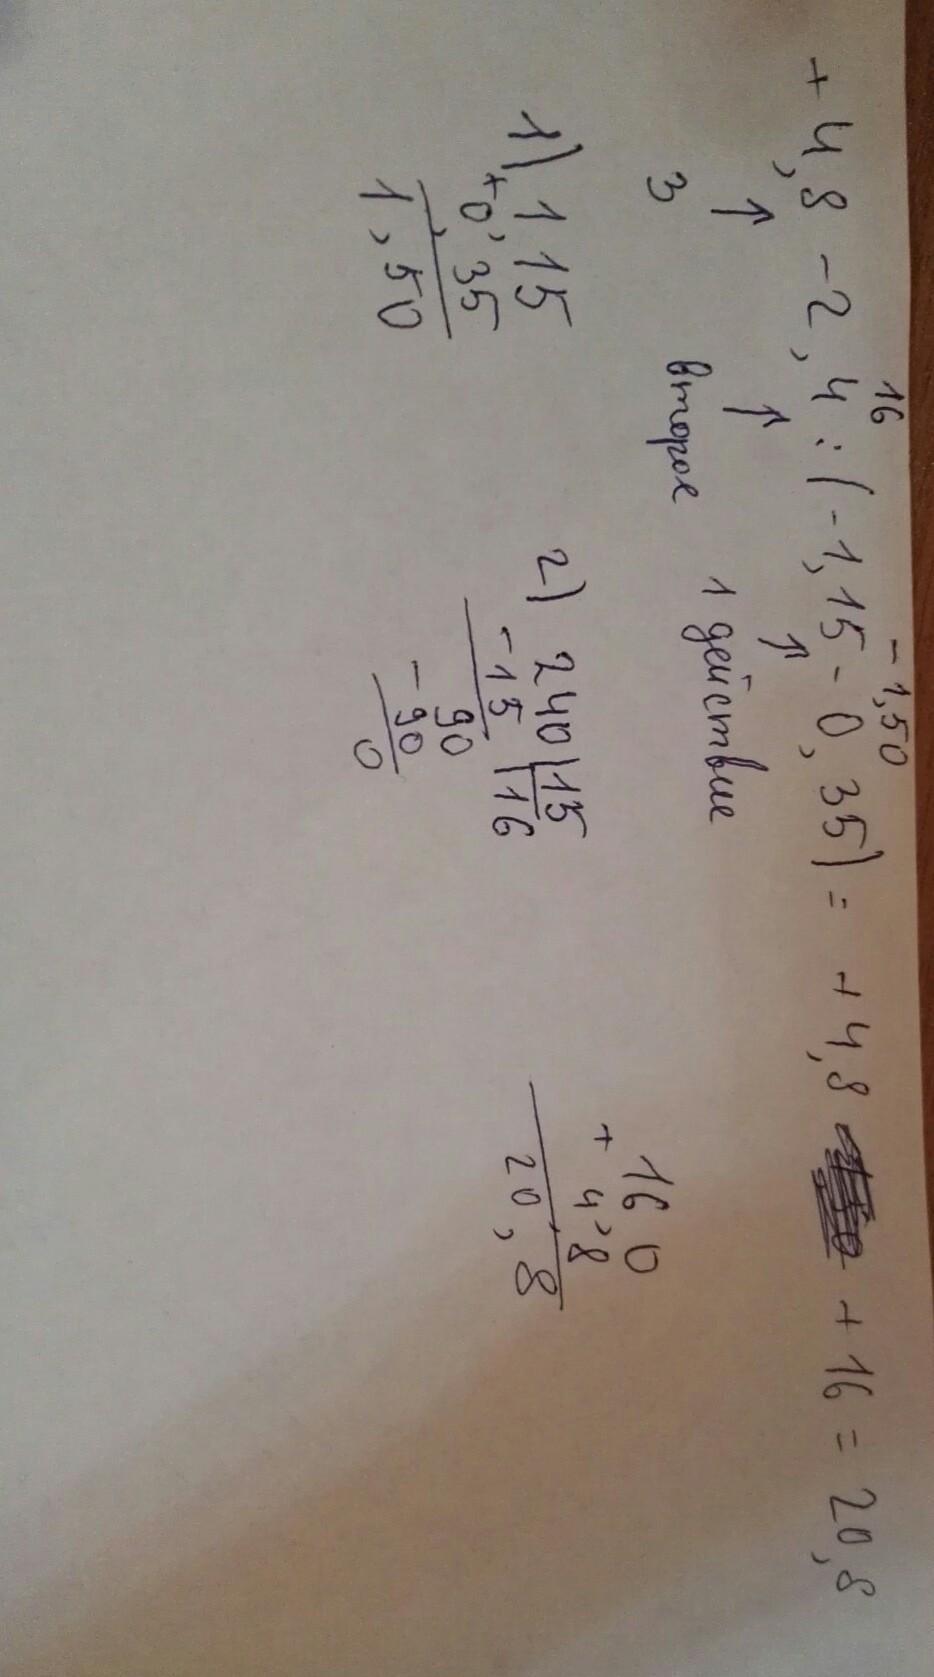 16 -1,50
+4,8 -2,4:(-1,15-0,35)= +4,8 +16=20,8
↑ ↑ ↑
3 второе 1 действие
1) 1,15
+0,35
1,50
2) 240|15
-15 |16
90
-90
0
16,0
+ 4,8
20,8